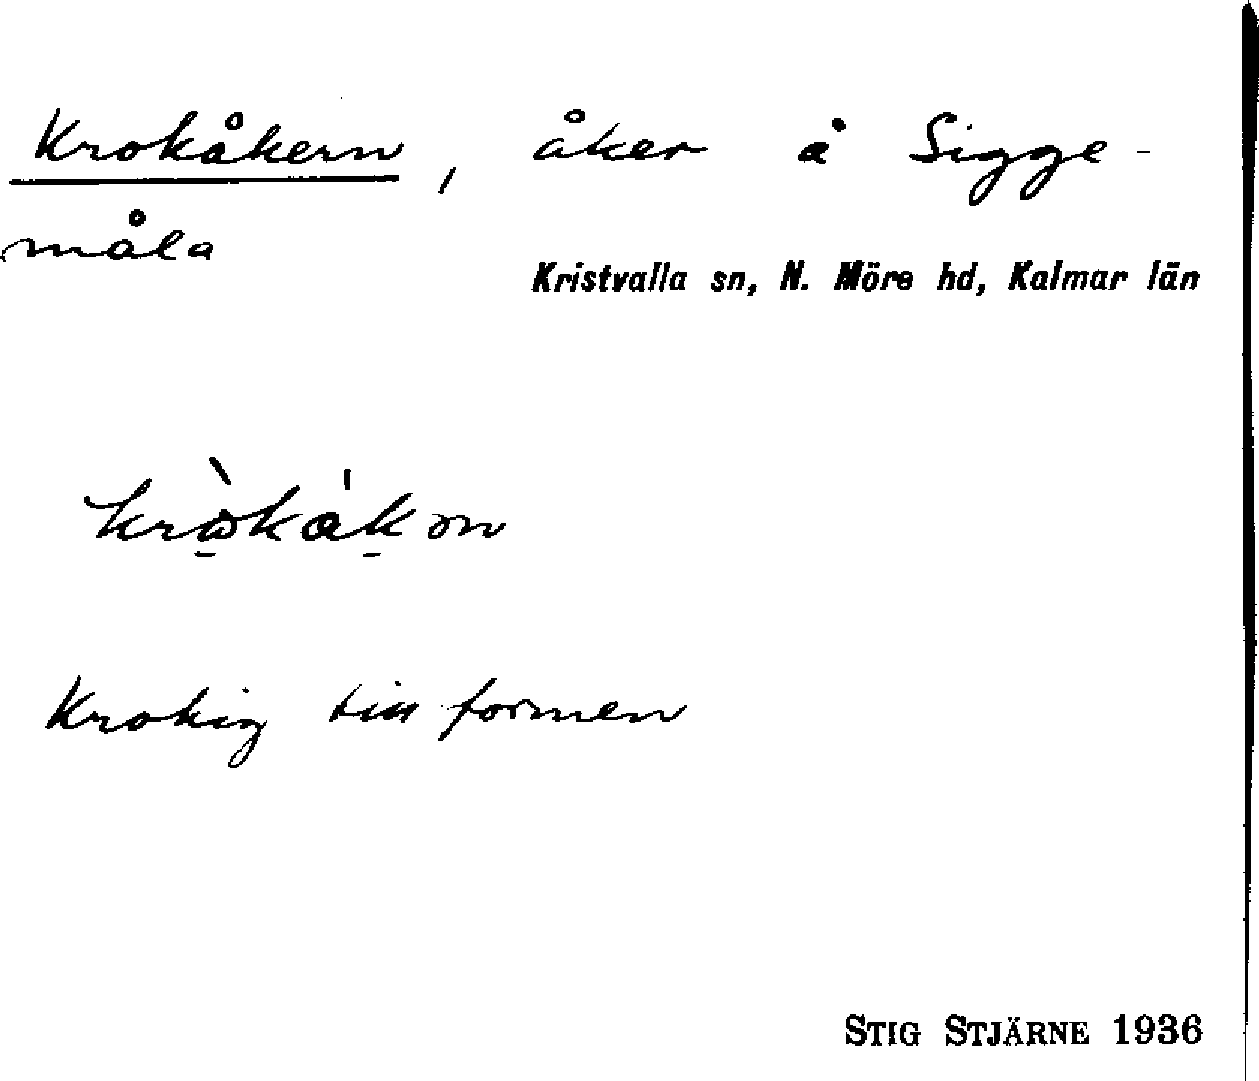 Krokåkern, åker å Sigge-
måla
Kristvalla sn, N. Möre hd, Kalmar län
Krokig till formen
STIG STJÄRNE 1936